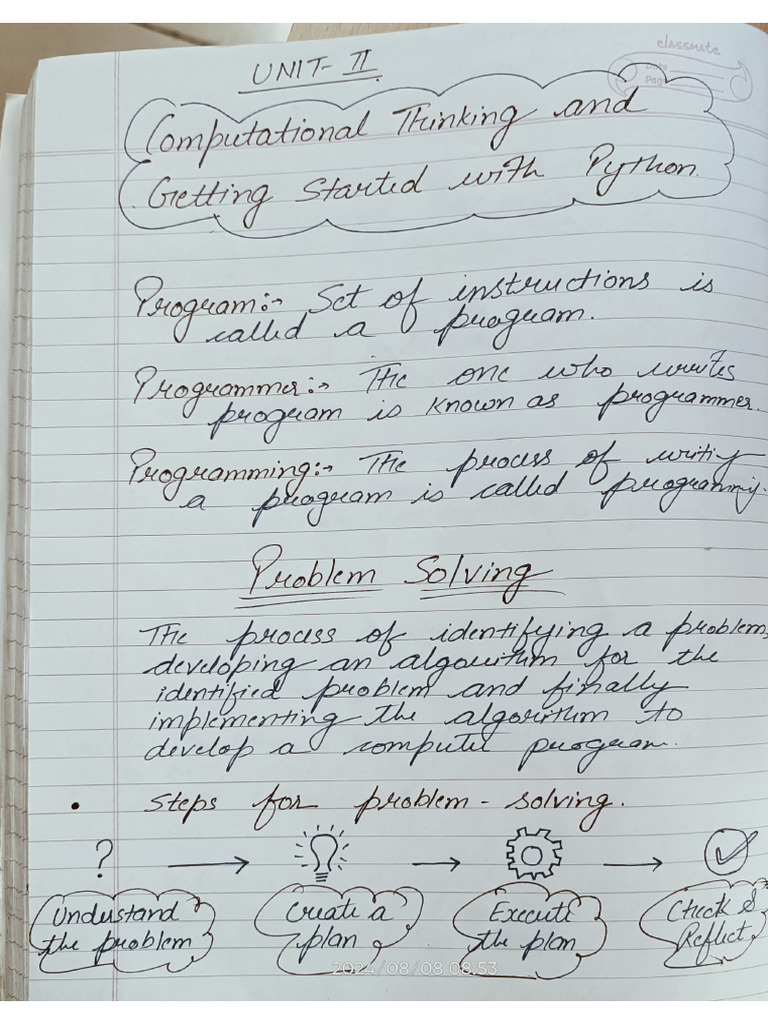 classmate
Date
Page
UNIT- II
Computational Thinking and
Getting Started with Python.
Program:- Set of instructions is
called a program.
Programmer:- The one who writes
program is known as programmer.
Programming:- The process of writing
a program is called programming.
Problem Solving
The process of identifying a problem,
developing an algorithm for the
identified problem and finally
implementing the algorithm to
develop a computer program.
• Steps for problem-solving.
? → → →
Understand Create a Execute Check &
the problem plan the plan Reflect
2024/08/08 08:53